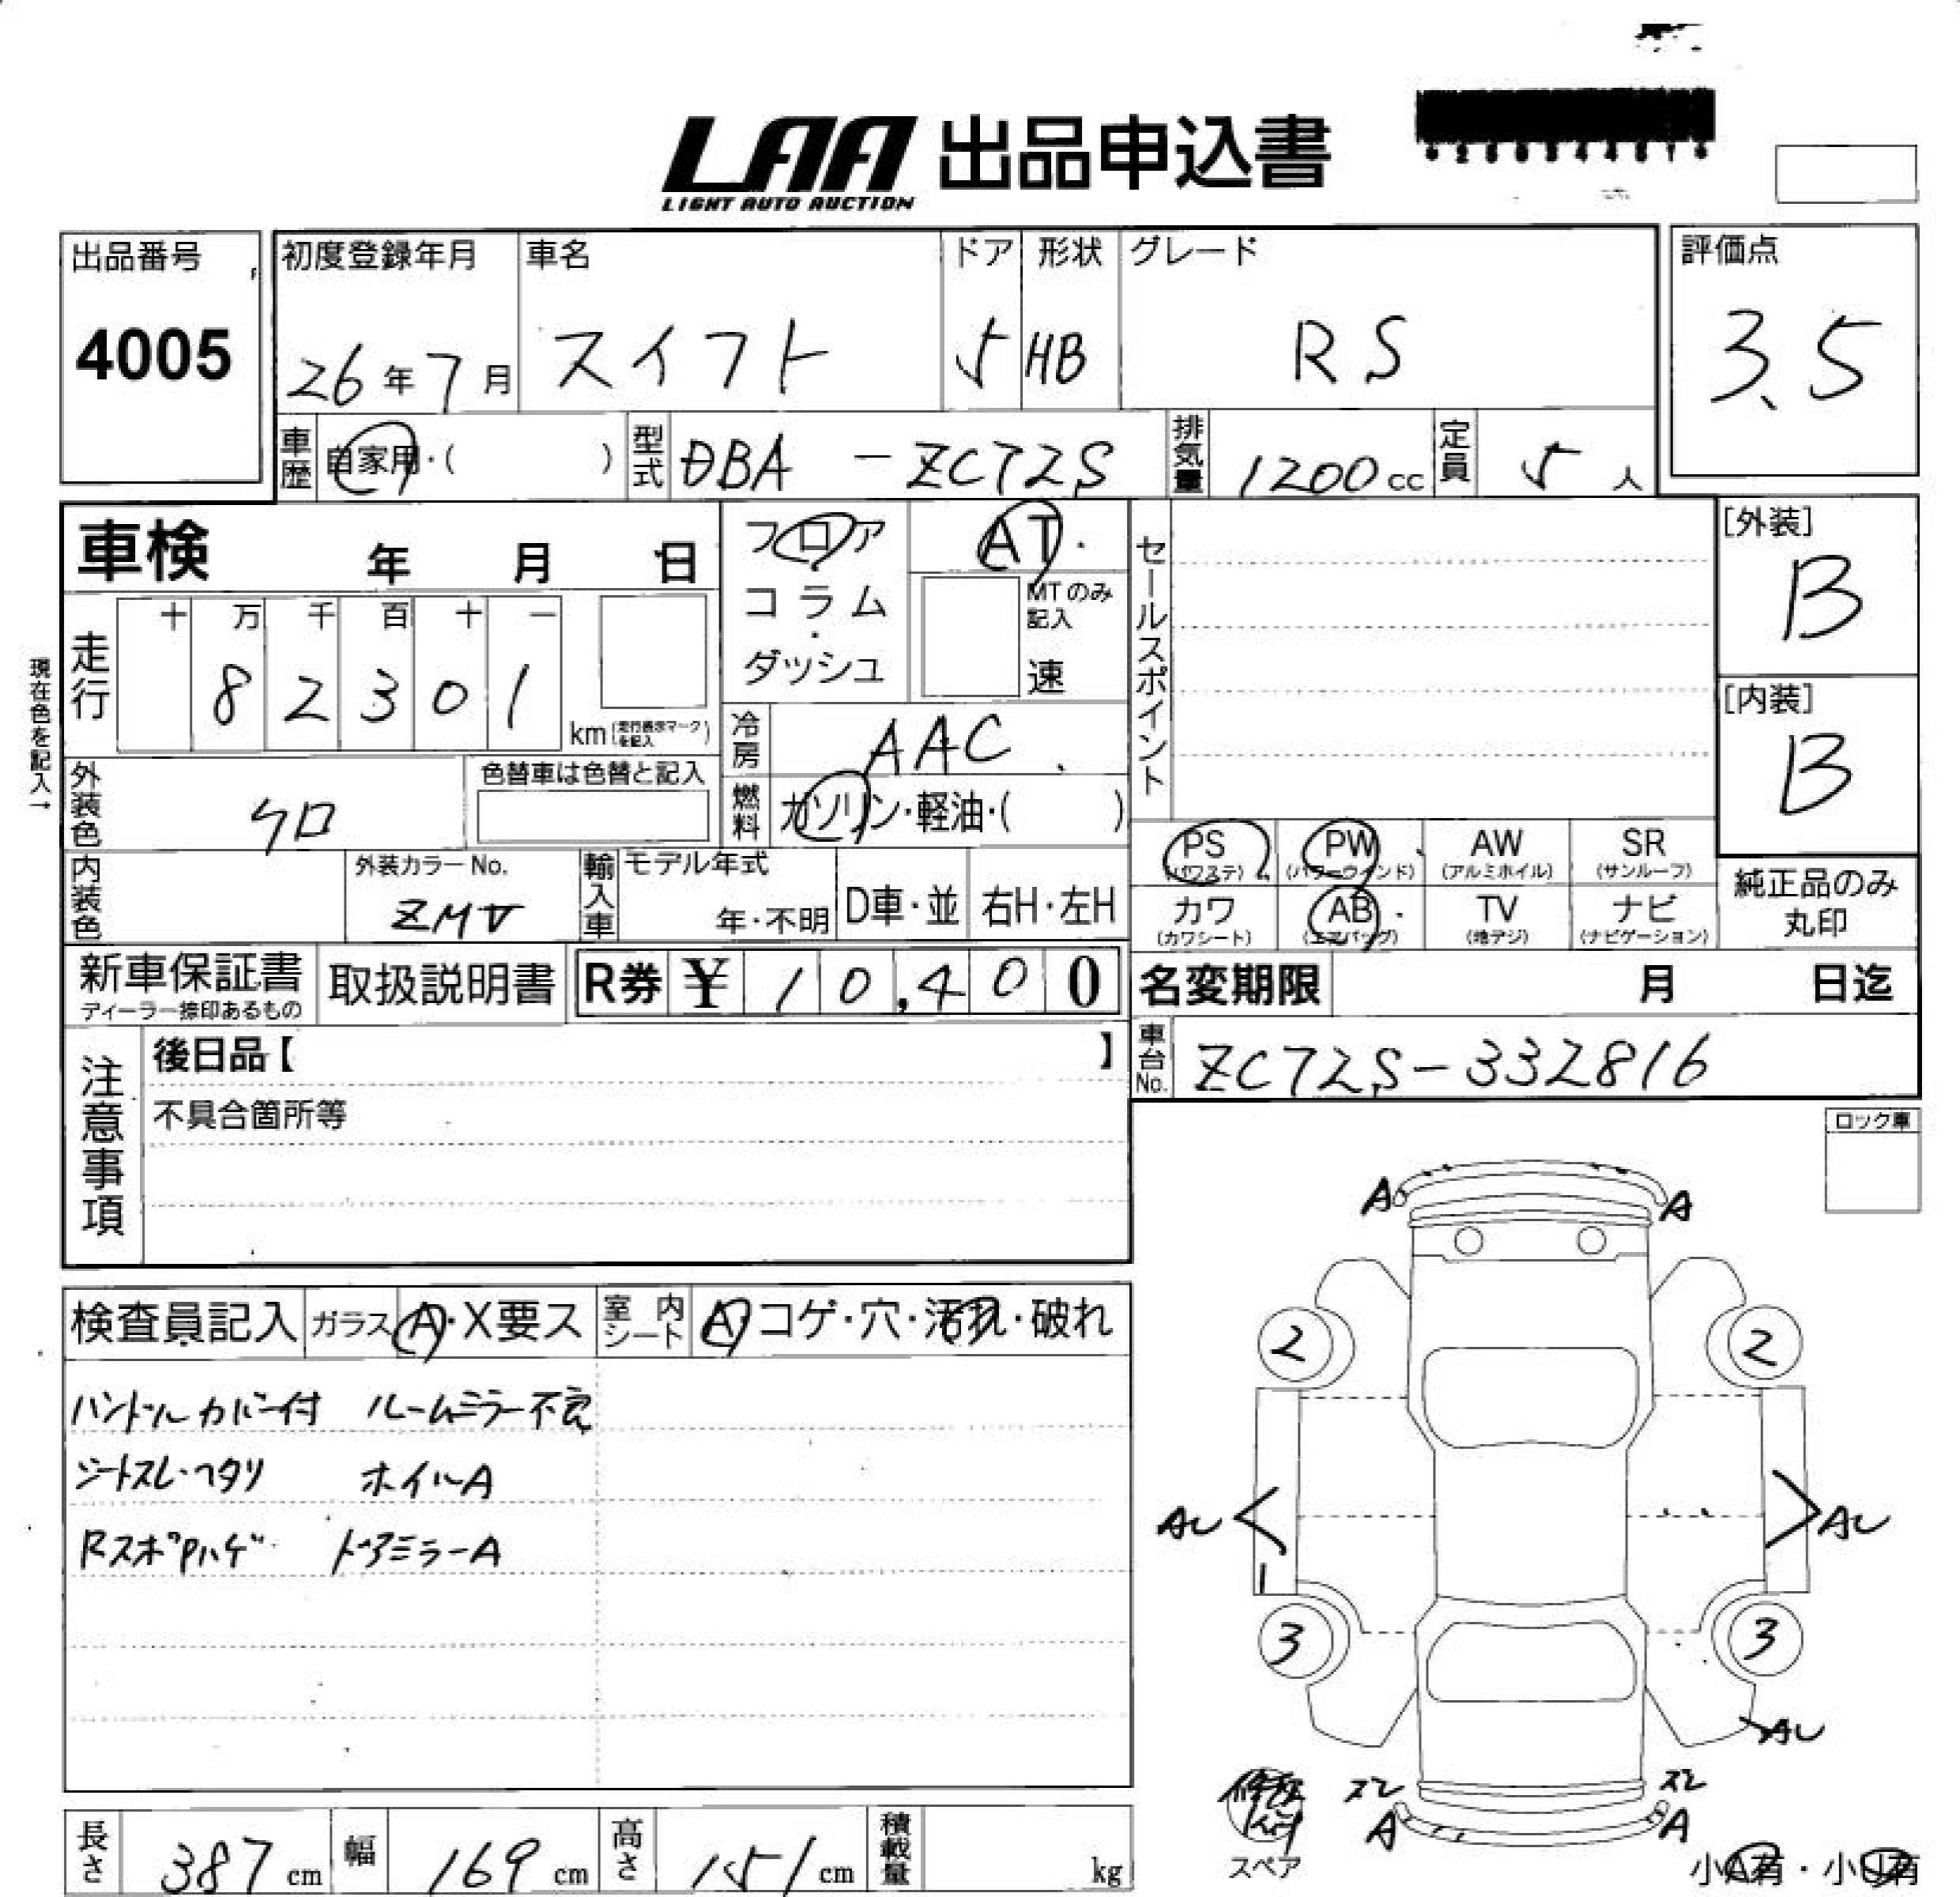 LAA 出品申込書
LIGHT AUTO AUCTION
出品番号
4005
初度登録年月
26年7月
車名
スイフト
ドア
5
形状
HB
グレード
RS
評価点
3.5
車歴
自家用・( )
型式
DBA-ZC72S
排気量
1200cc
定員
5人
車検 年 月 日
フロア
コラム
・
ダッシュ
AT・
MTのみ
記入
速
セールスポイント
[外装]
B
[内装]
B
現在色を記入→
走行
十 万 千 百 十 一
8 2 3 0 1
km(走行表示マークを記入)
冷房
AAC
燃料
ガソリン・軽油・( )
外装色
クロ
色替車は色替と記入
内装色
外装カラーNo.
ZMV
輸入車
モデル年式
年・不明
D車・並
右H・左H
PS
(パワステ)
PW
(パワーウインド)
AW
(アルミホイル)
SR
(サンルーフ)
カワ
(カワシート)
AB
(エアバッグ)
TV
(地デジ)
ナビ
(ナビゲーション)
純正品のみ
丸印
新車保証書
ディーラー捺印あるもの
取扱説明書
R券 ¥ 10,400
名変期限 月 日迄
注意事項
後日品【 】
不具合箇所等
車台No.
ZC72S-332816
ロック車
検査員記入
ガラス
A・X要ス
室内
シート
A・コゲ・穴・汚れ・破れ
ハンドルカバー付 ルームミラー不良
シートスレ・ヘタリ ホイルA
RスポPハゲ ドアミラーA
A A
2 2
AU AU
3 3
AU
スレ スレ
A A
修理
スペア
小A有・小U有
長さ
387cm
幅
169cm
高さ
151cm
積載量
kg